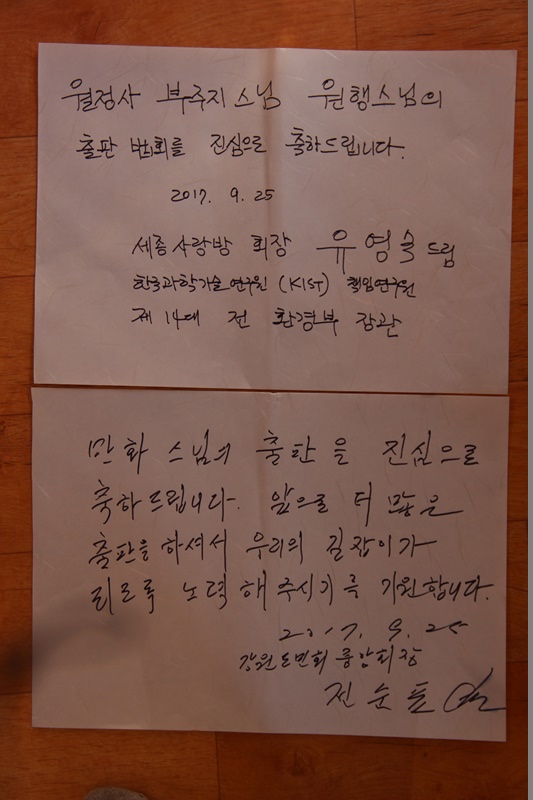 월정사 부주지스님 원행스님의
출판 법회를 진심으로 축하드립니다.
2017. 9. 25
세종사랑방 회장 유영숙 드림
한국과학기술연구원 (KIST) 책임연구원
제 14대 전 환경부 장관
만화 스님의 출판을 진심으로
축하드립니다. 앞으로 더 많은
출판을 하셔서 우리의 길잡이가
되도록 노력해 주시기를 기원합니다.
2017. 9. 25
강원도민회 중앙회장
전순표